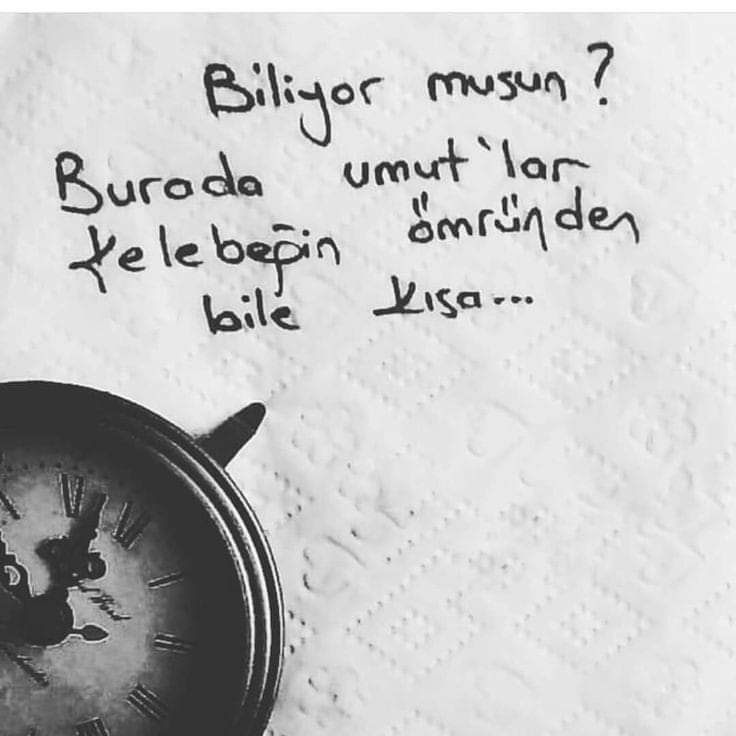 Biliyor musun?
Burada umut'lar
Kelebeğin ömründen
bile kısa...